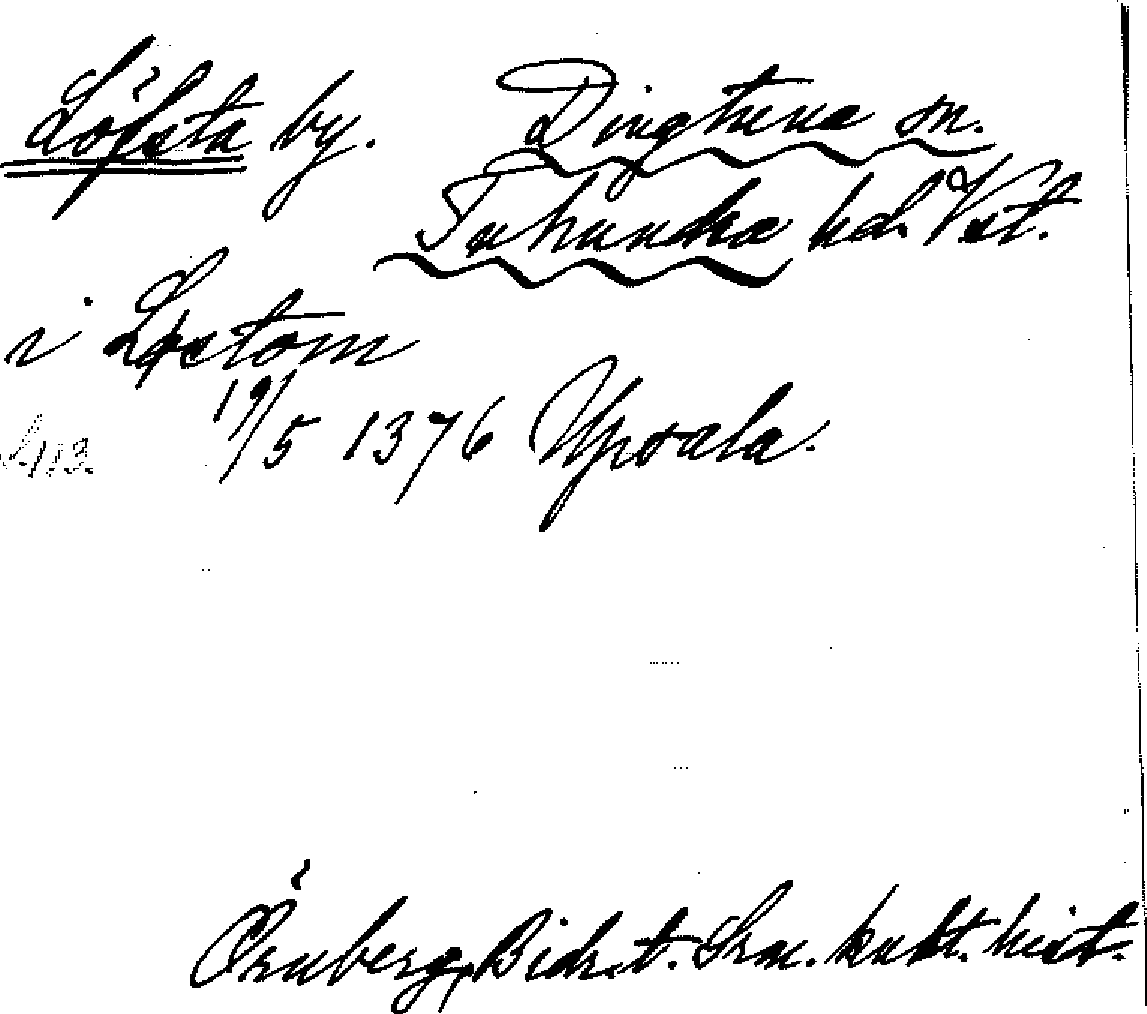 Löfsta by. Dingtuna sn.
Tuhundra hd. Vst.
i Løstom
19/5 1376 Upsala.
Örnberg, Bidr. t. Srm. kult. hist.